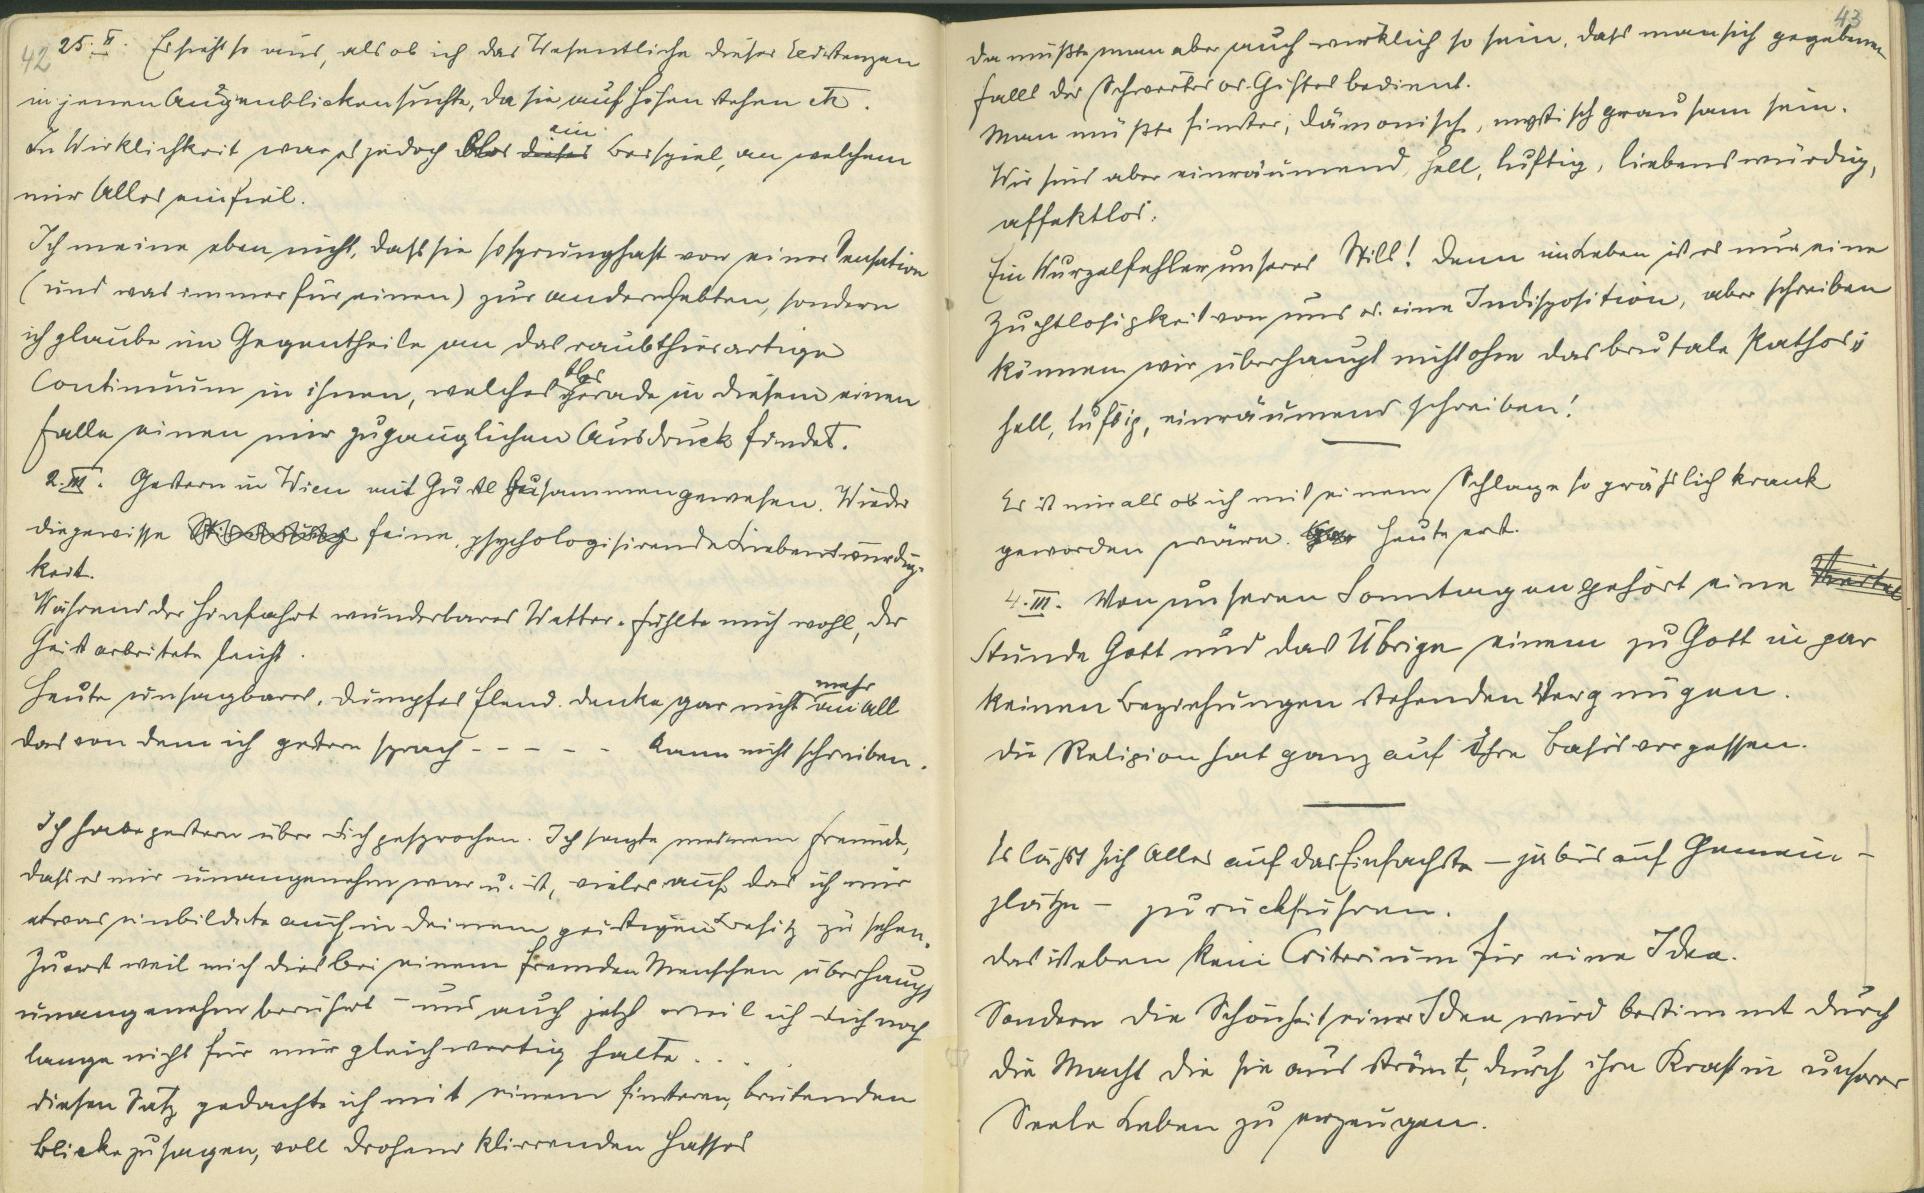 42
25. II. Es sieht so aus, als ob ich das Wesentliche dieser Existenzen
in jenen Augenblicken suchte, da sie auf Höhen stehen etc.
In Wirklichkeit war es jedoch blos dieses ein Beispiel, an welchem
mir Alles einfiel.
Ich meine eben nicht, dass sie so sprunghaft von einer Sensation
(und was immer für einen) zur andern lebten, sondern
ich glaube im Gegentheile an das raubthierartige
Continuum in ihnen, welches blos gerade in diesem einen
Falle einen mir zugänglichen Ausdruck findet.
2. III. Gestern in Wien mit Gustl zusammengewesen. Wieder
die gewisse feine, psychologisirende Liebenswürdig-
keit.
Während der Hinfahrt wunderbares Wetter. fühlte mich wohl, der
Geist arbeitete leicht.
Heute unsagbares, dumpfes Elend. denke gar nicht mehr an all
das von dem ich gestern sprach - - - - - Kann nicht schreiben.
Ich habe gestern über dich gesprochen. Ich sagte meinem Freunde,
dass es mir unangenehm war u. ist, vieles auf das ich mir
etwas einbildete auch in deinem geistigen Besitz zu sehen.
Zuerst weil mich dies bei einem fremden Menschen überhaupt
unangenehm berührt – und auch jetzt weil ich dich noch
lange nicht für mir gleichwertig halte. . .
diesen Satz gedachte ich mit einem finsteren, brütenden
Blicke zu sagen, voll drohend klirrenden Hasses
43
da müßte man aber auch wirklich so sein, dass man sich gegebenen-
falls des Schwertes od. Giftes bedient.
Man müßte finster, dämonisch, mystisch grausam sein.
Wir sind aber einräumend, hell, luftig, liebenswürdig,
affektlos.
Ein Wurzelfehler unseres Stils! denn im Leben ist es nur eine
Zuchtlosigkeit von uns od. eine Indisposition, aber schreiben
können wir überhaupt nicht ohne das brutale Pathos;
hell, luftig, einräumend schreiben!
Es ist mir als ob ich mit einem Schlage so gräßlich krank
geworden wäre. heute erst.
4. III. Von unseren Sonntagen gehört eine
Stunde Gott und das Übrige einem zu Gott in gar
keinen Beziehungen stehenden Vergnügen.
die Religion hat ganz auf ihre Basis vergessen.
Es läßt sich Alles auf das Einfachste – ja bis auf Gemein-
plätze – zurückführen.
das ist eben kein Criterium für eine Idee.
Sondern die Schönheit einer Idee wird bestimmt durch
die Macht die sie ausströmt, durch ihre Kraft in unserer
Seele Leben zu erzeugen.